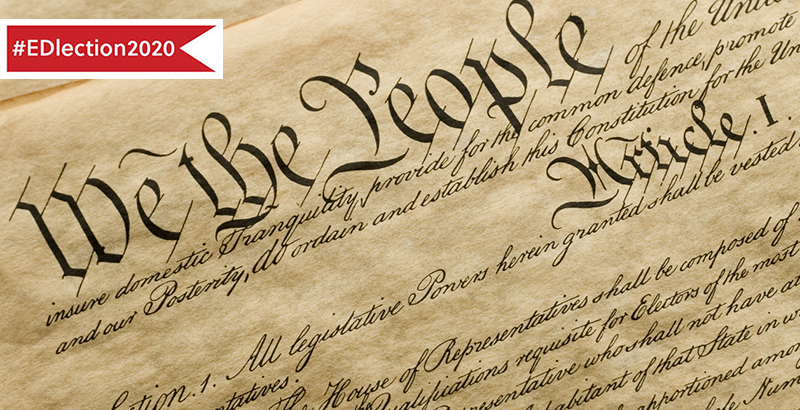 #EDlection2020
We the People of the Unite
insure domestic Tranquility, provide for the common defence, promote
and our Posterity, do ordain and establish this Constitution for the Un
Article. I.
ction. 1. All legislative Powers herein granted shall be vested
ntatives.
House of Representatives shall be composed of
ualifications requisite for Electors of the most
resentative who shall not have at
habitant of that State in w
apportioned amon
Num